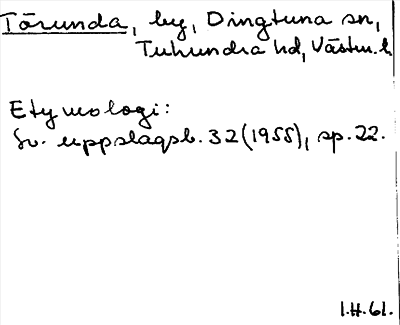 Tōrunda, by, Dingtuna sn,
Tuhundra hd, Västm. l
Etymologi:
Sv. uppslagsb. 32 (1955), sp. 22.
I.H. 61.